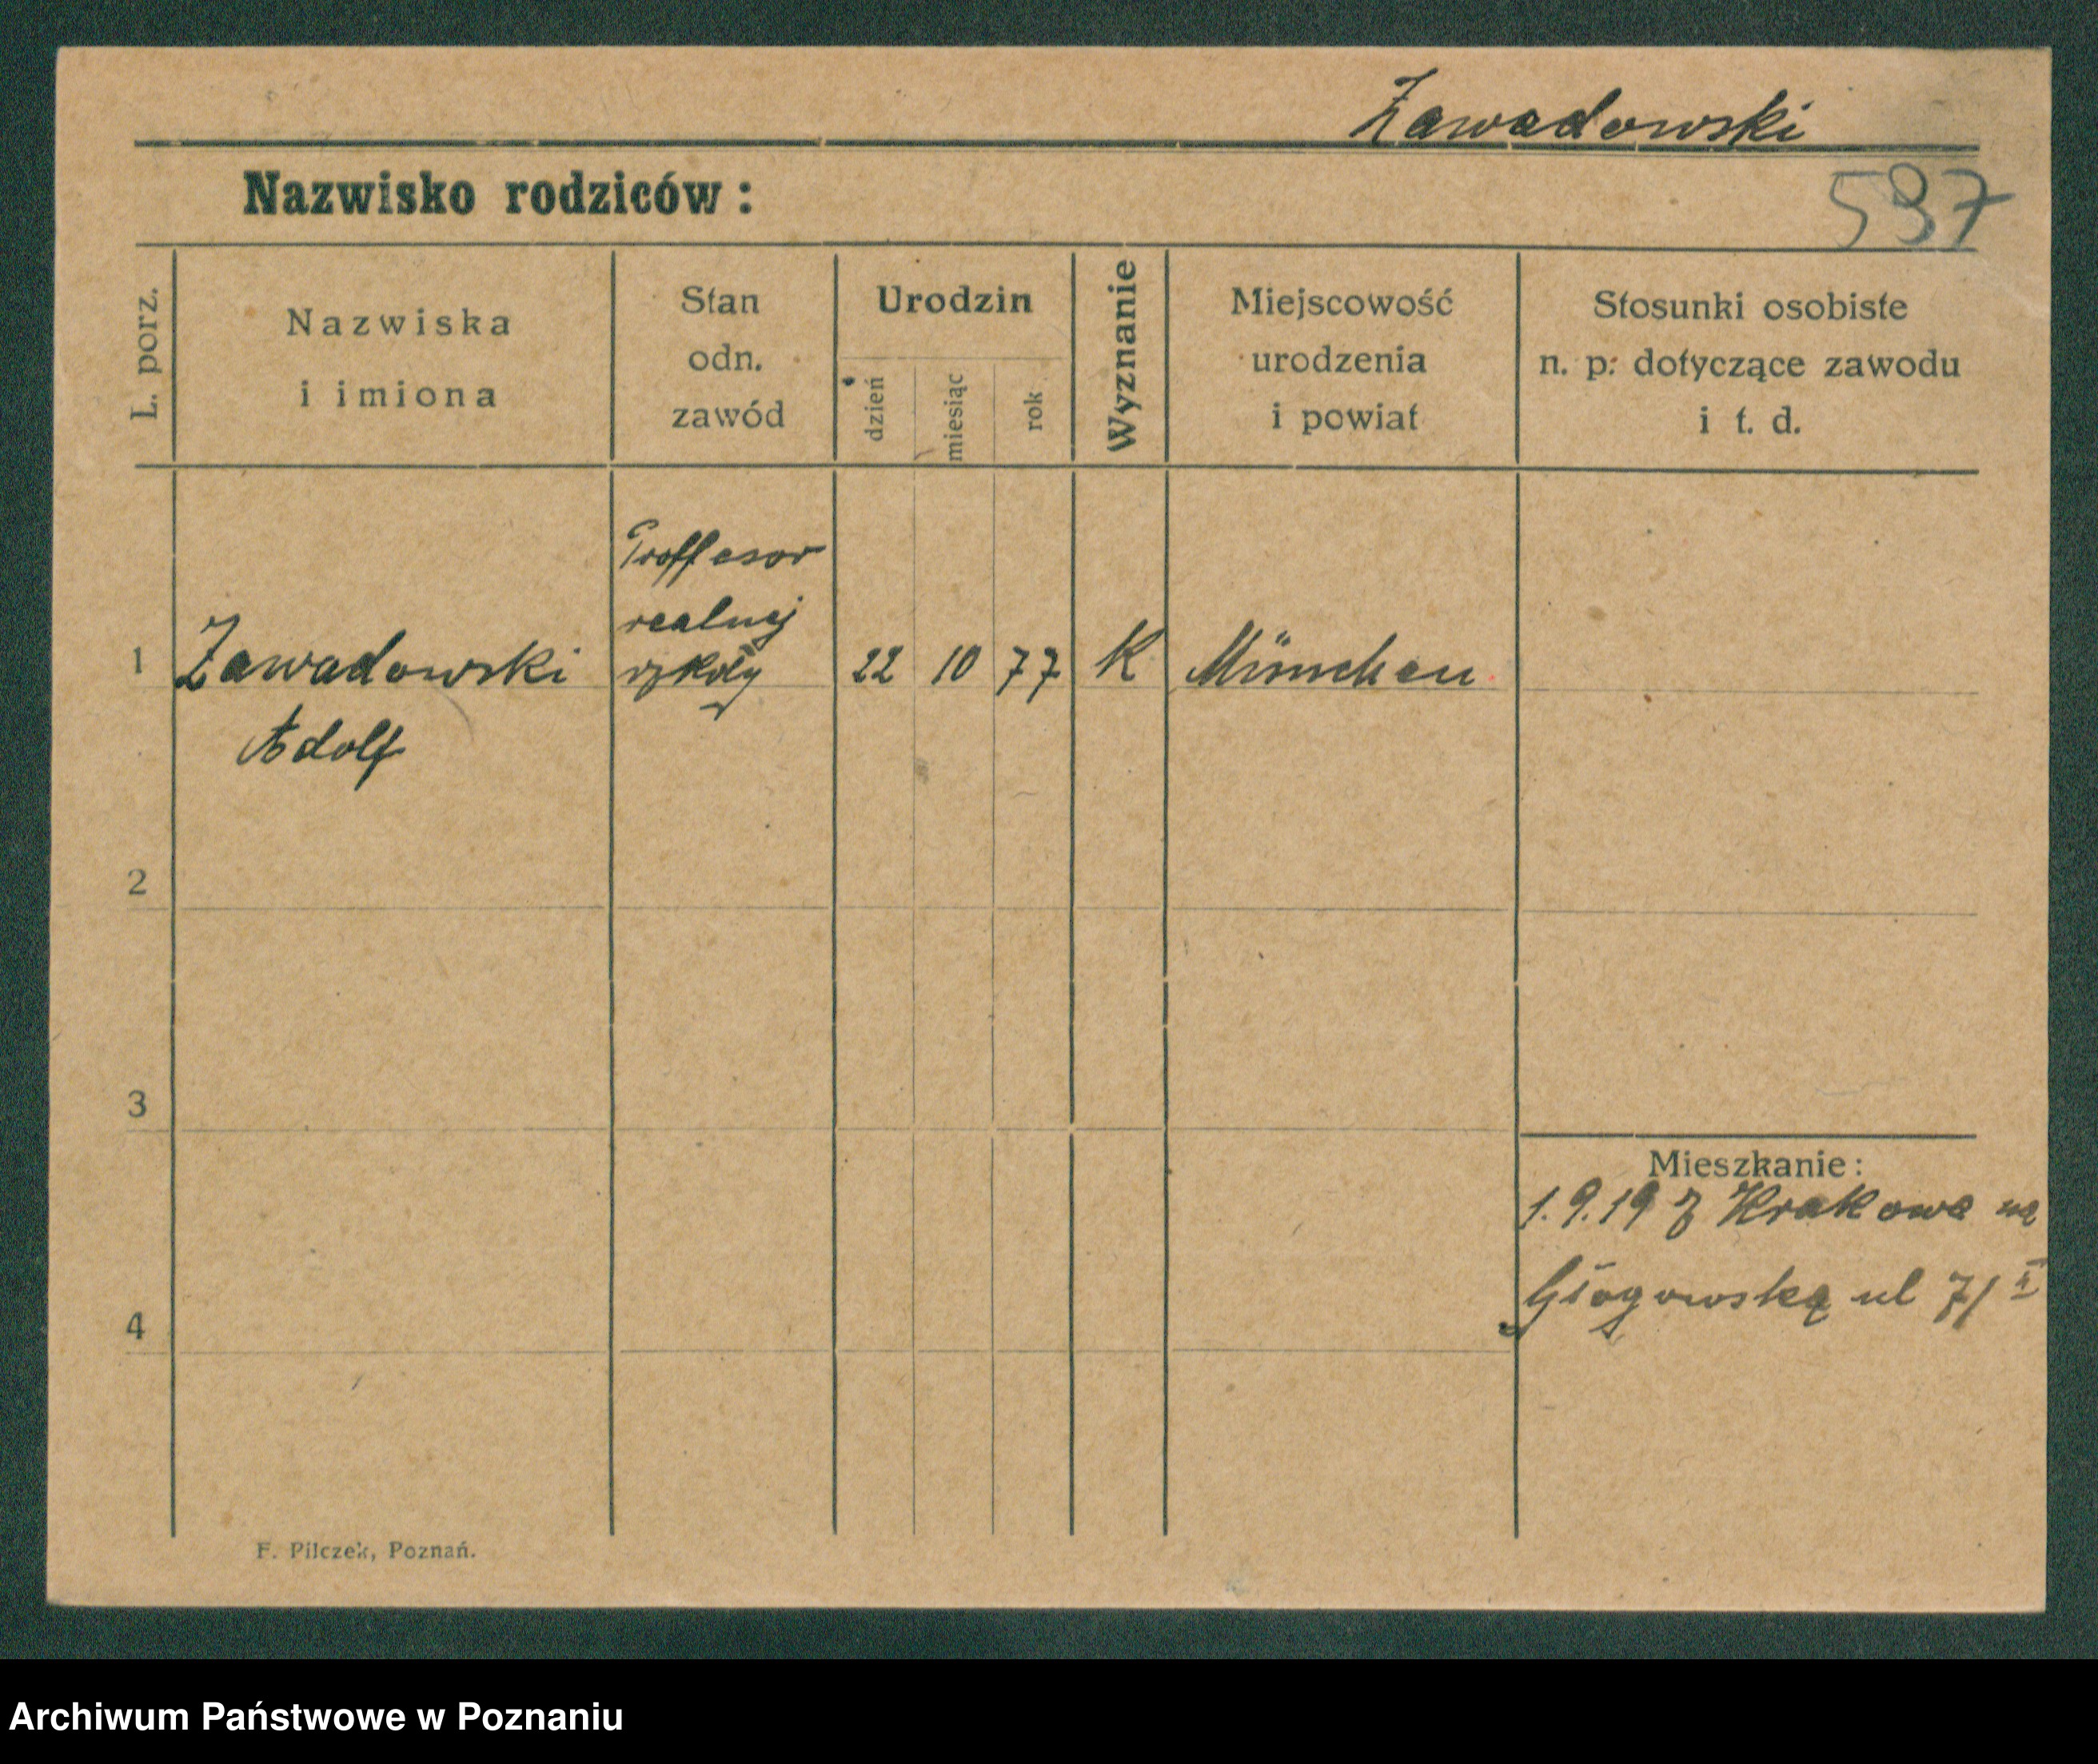 Zawadowski
Nazwisko rodziców:
597
L. porz.
Nazwiska
i imiona
Stan
odn.
zawód
Urodzin
dzień
miesiąc
rok
Wyznanie
Miejscowość
urodzenia
i powiat
Stosunki osobiste
n. p: dotyczące zawodu
i t. d.
Proffesor
realnej
szkoły
1 Zawadowski 22 10 77 K München
Adolf
2
3
4
Mieszkanie:
1.9.19 z Krakowa na
Głogowską ul 71 II
F. Pilczek, Poznań.
Archiwum Państwowe w Poznaniu